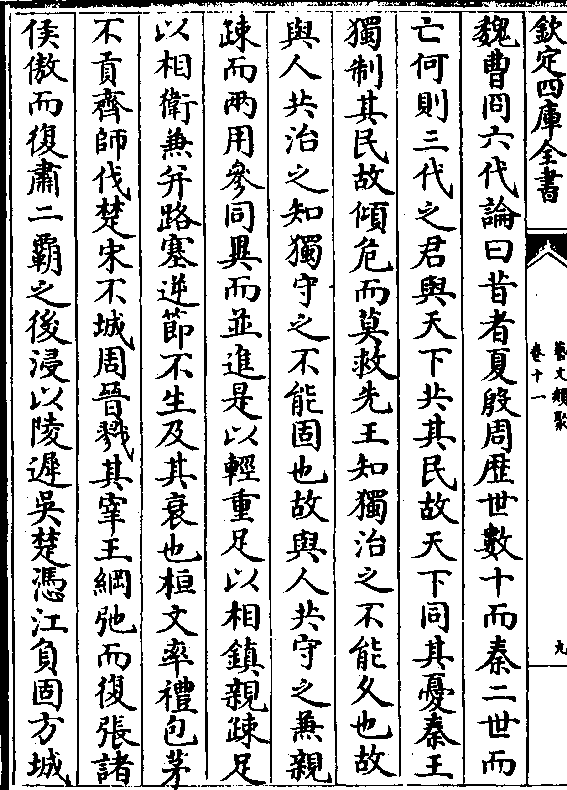 欽定四庫全書
藝文類聚
卷十一
九
魏曹冏六代論曰昔者夏殷周歷世數十而秦二世而
亡何則三代之君與天下共其民故天下同其憂秦王
獨制其民故傾危而莫救先王知獨治之不能久也故
與人共治之知獨守之不能固也故與人共守之兼親
疎而兩用參同異而並進是以輕重足以相鎮親疎足
以相衛兼并路塞逆節不生及其衰也桓文率禮包茅
不貢齊師伐楚宋不城周晉戮其宰王綱弛而復張諸
侯傲而復肅二霸之後浸以陵遲吳楚憑江負固方城